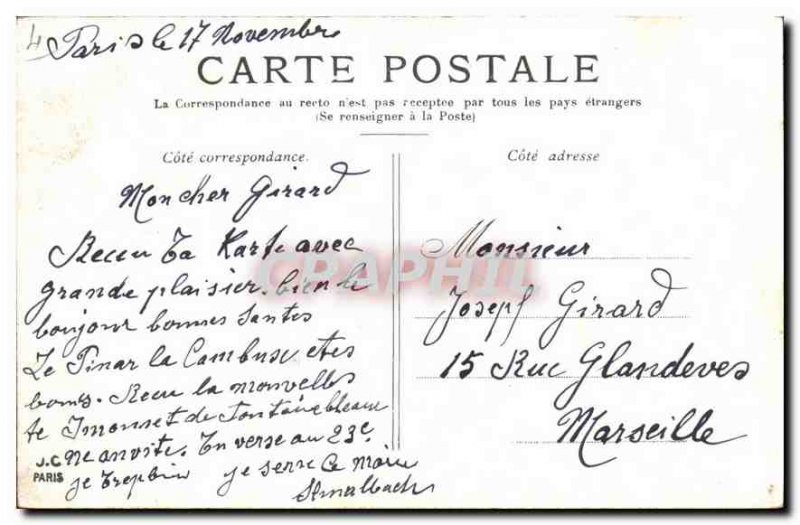 4 Paris le 17 Novembre
CARTE POSTALE
La Correspondance au recto n'est pas receptee par tous les pays étrangers
(Se renseigner à la Poste)
Côté correspondance.
Côté adresse
Mon cher Girard
Recu Ta Karte avec
grande plaisier. bien le
boujour bonnes Santes
Le Pinar la Cambuse et es
bonnes. Recu la nouvelles
de Fontainebleau
ne anvite. En verse au 23e
je Trop bien je serre la main
CPAPHIL
Monsieur
Joseph Girard
15 Rue Glandeves
Marseille
J.C
PARIS